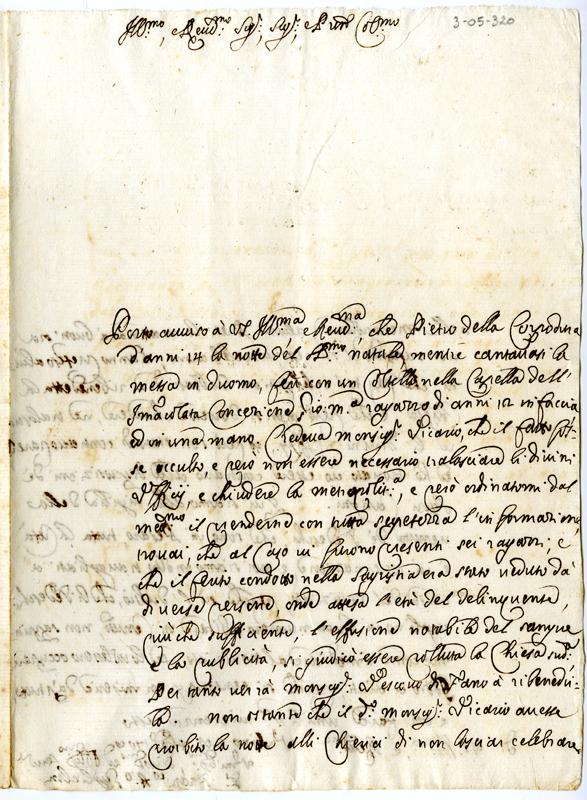 3-05-320
Ill.mo, e Reud.mo Sig.r, Sig.r, e P.ron Col.mo
Porto auuiso à V.S. Ill.ma, e Reud.ma, che Pietro della Corrodura
d'anni 14 la notte del SS.mo natale, mentre cantauasi la
messa in duomo, ferì con un Coltello nella Capella dell'
Imacolata Concezione Gio: m.a ragazzo di anni 12 in faccia
ed in una mano. Credeua monsig.r Vicario, che il fatto fos-
se occulto, e però non essere necessario tralasciare li diuini
Vfficij, e chiudere la metropolit.a, e però ordinatomi dal
med.mo il prenderne con tutta segretezza l'informazioni,
trouai, che al Caso ui furono presenti sei ragazzi, e
che il ferito condotto nella Sagristia era stato ueduto da
diuerse persone, onde attesa l'età del delinquente,
più che sufficiente, l'effusione notabile del sangue
e la publicità, si giudicò essere polluta la Chiesa sud.a
Per tanto uerrà monsig.r Vescouo di Fano à ribenedir-
la. non ostante che il d.o monsig.r Vicario auesse
proibito la notte alli Chierici di non lasciar celebrare